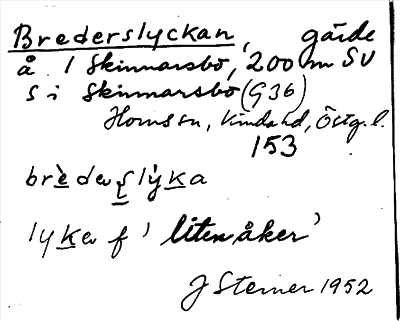 Brederslyckan, gärde
å 1 Skinnarsbo, 200 m SV
S i Skinnarsbo (G36)
Horns sn, Kinda hd, Östg. l.
153
brèdeṣlýka
lyka f 'liten åker'
J Sterner 1952